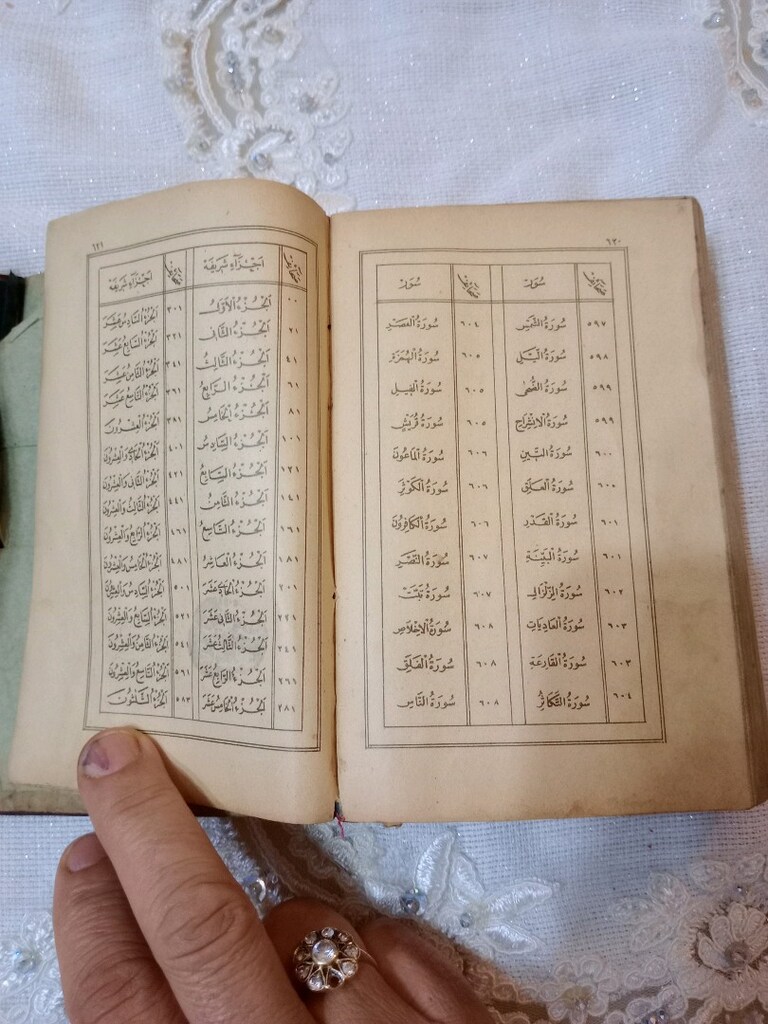 ٦٢٠
صحايف سور صحايف سور
٥٩٧ سورة الشمس ٦٠٤ سورة العصر
٥٩٨ سورة الليل ٦٠٥ سورة الهمزة
٥٩٩ سورة الضحى ٦٠٥ سورة الفيل
٥٩٩ سورة الانشراح ٦٠٥ سورة قريش
٦٠٠ سورة التين ٦٠٦ سورة الماعون
٦٠٠ سورة العلق ٦٠٦ سورة الكوثر
٦٠١ سورة القدر ٦٠٦ سورة الكافرون
٦٠١ سورة البينة ٦٠٧ سورة النصر
٦٠٢ سورة الزلزال ٦٠٧ سورة تبت
٦٠٣ سورة العاديات ٦٠٨ سورة الاخلاص
٦٠٣ سورة القارعة ٦٠٨ سورة الفلق
٦٠٤ سورة التكاثر ٦٠٨ سورة الناس
٦٢١
صحايف اجزاء شريفه صحايف اجزاء شريفه
٠٠ الجزء الاول ٣٠١ الجزء السادس عشر
٢١ الجزء الثانى ٣٢١ الجزء السابع عشر
٤١ الجزء الثالث ٣٤١ الجزء الثامن عشر
٦١ الجزء الرابع ٣٦١ الجزء التاسع عشر
٨١ الجزء الخامس ٣٨١ الجزء العشرون
١٠١ الجزء السادس ٤٠١ الجزء الحادى والعشرون
١٢١ الجزء السابع ٤٢١ الجزء الثانى والعشرون
١٤١ الجزء الثامن ٤٤١ الجزء الثالث والعشرون
١٦١ الجزء التاسع ٤٦١ الجزء الرابع والعشرون
١٨١ الجزء العاشر ٤٨١ الجزء الخامس والعشرون
٢٠١ الجزء الحادى عشر ٥٠١ الجزء السادس والعشرون
٢٢١ الجزء الثانى عشر ٥٢١ الجزء السابع والعشرون
٢٤١ الجزء الثالث عشر ٥٤١ الجزء الثامن والعشرون
٢٦١ الجزء الرابع عشر ٥٦١ الجزء التاسع والعشرون
٢٨١ الجزء الخامس عشر ٥٨٣ الجزء الثلثون